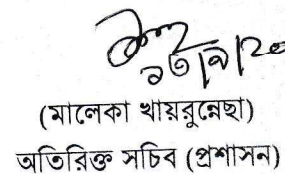 ২৩|৭|২০
(মালেকা খায়রুন্নেছা)
অতিরিক্ত সচিব (প্রশাসন)